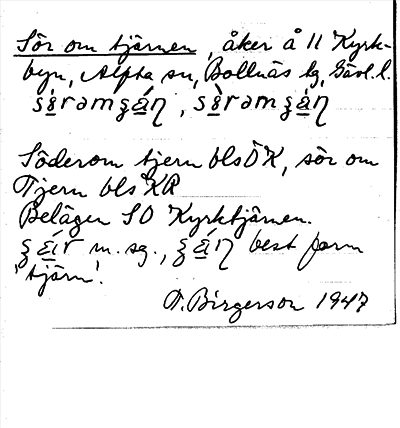 Sör om tjärnen, åker å 11 Kyrk-
byn, Alfta sn, Bollnäs tg, Gävl. l.
Söderom tjern bls ÖK, sör om
Tjern bls KR
Belägen SO Kyrktjärnen.
m. sg., best form
'tjärn'.
T. Birgerson 1947